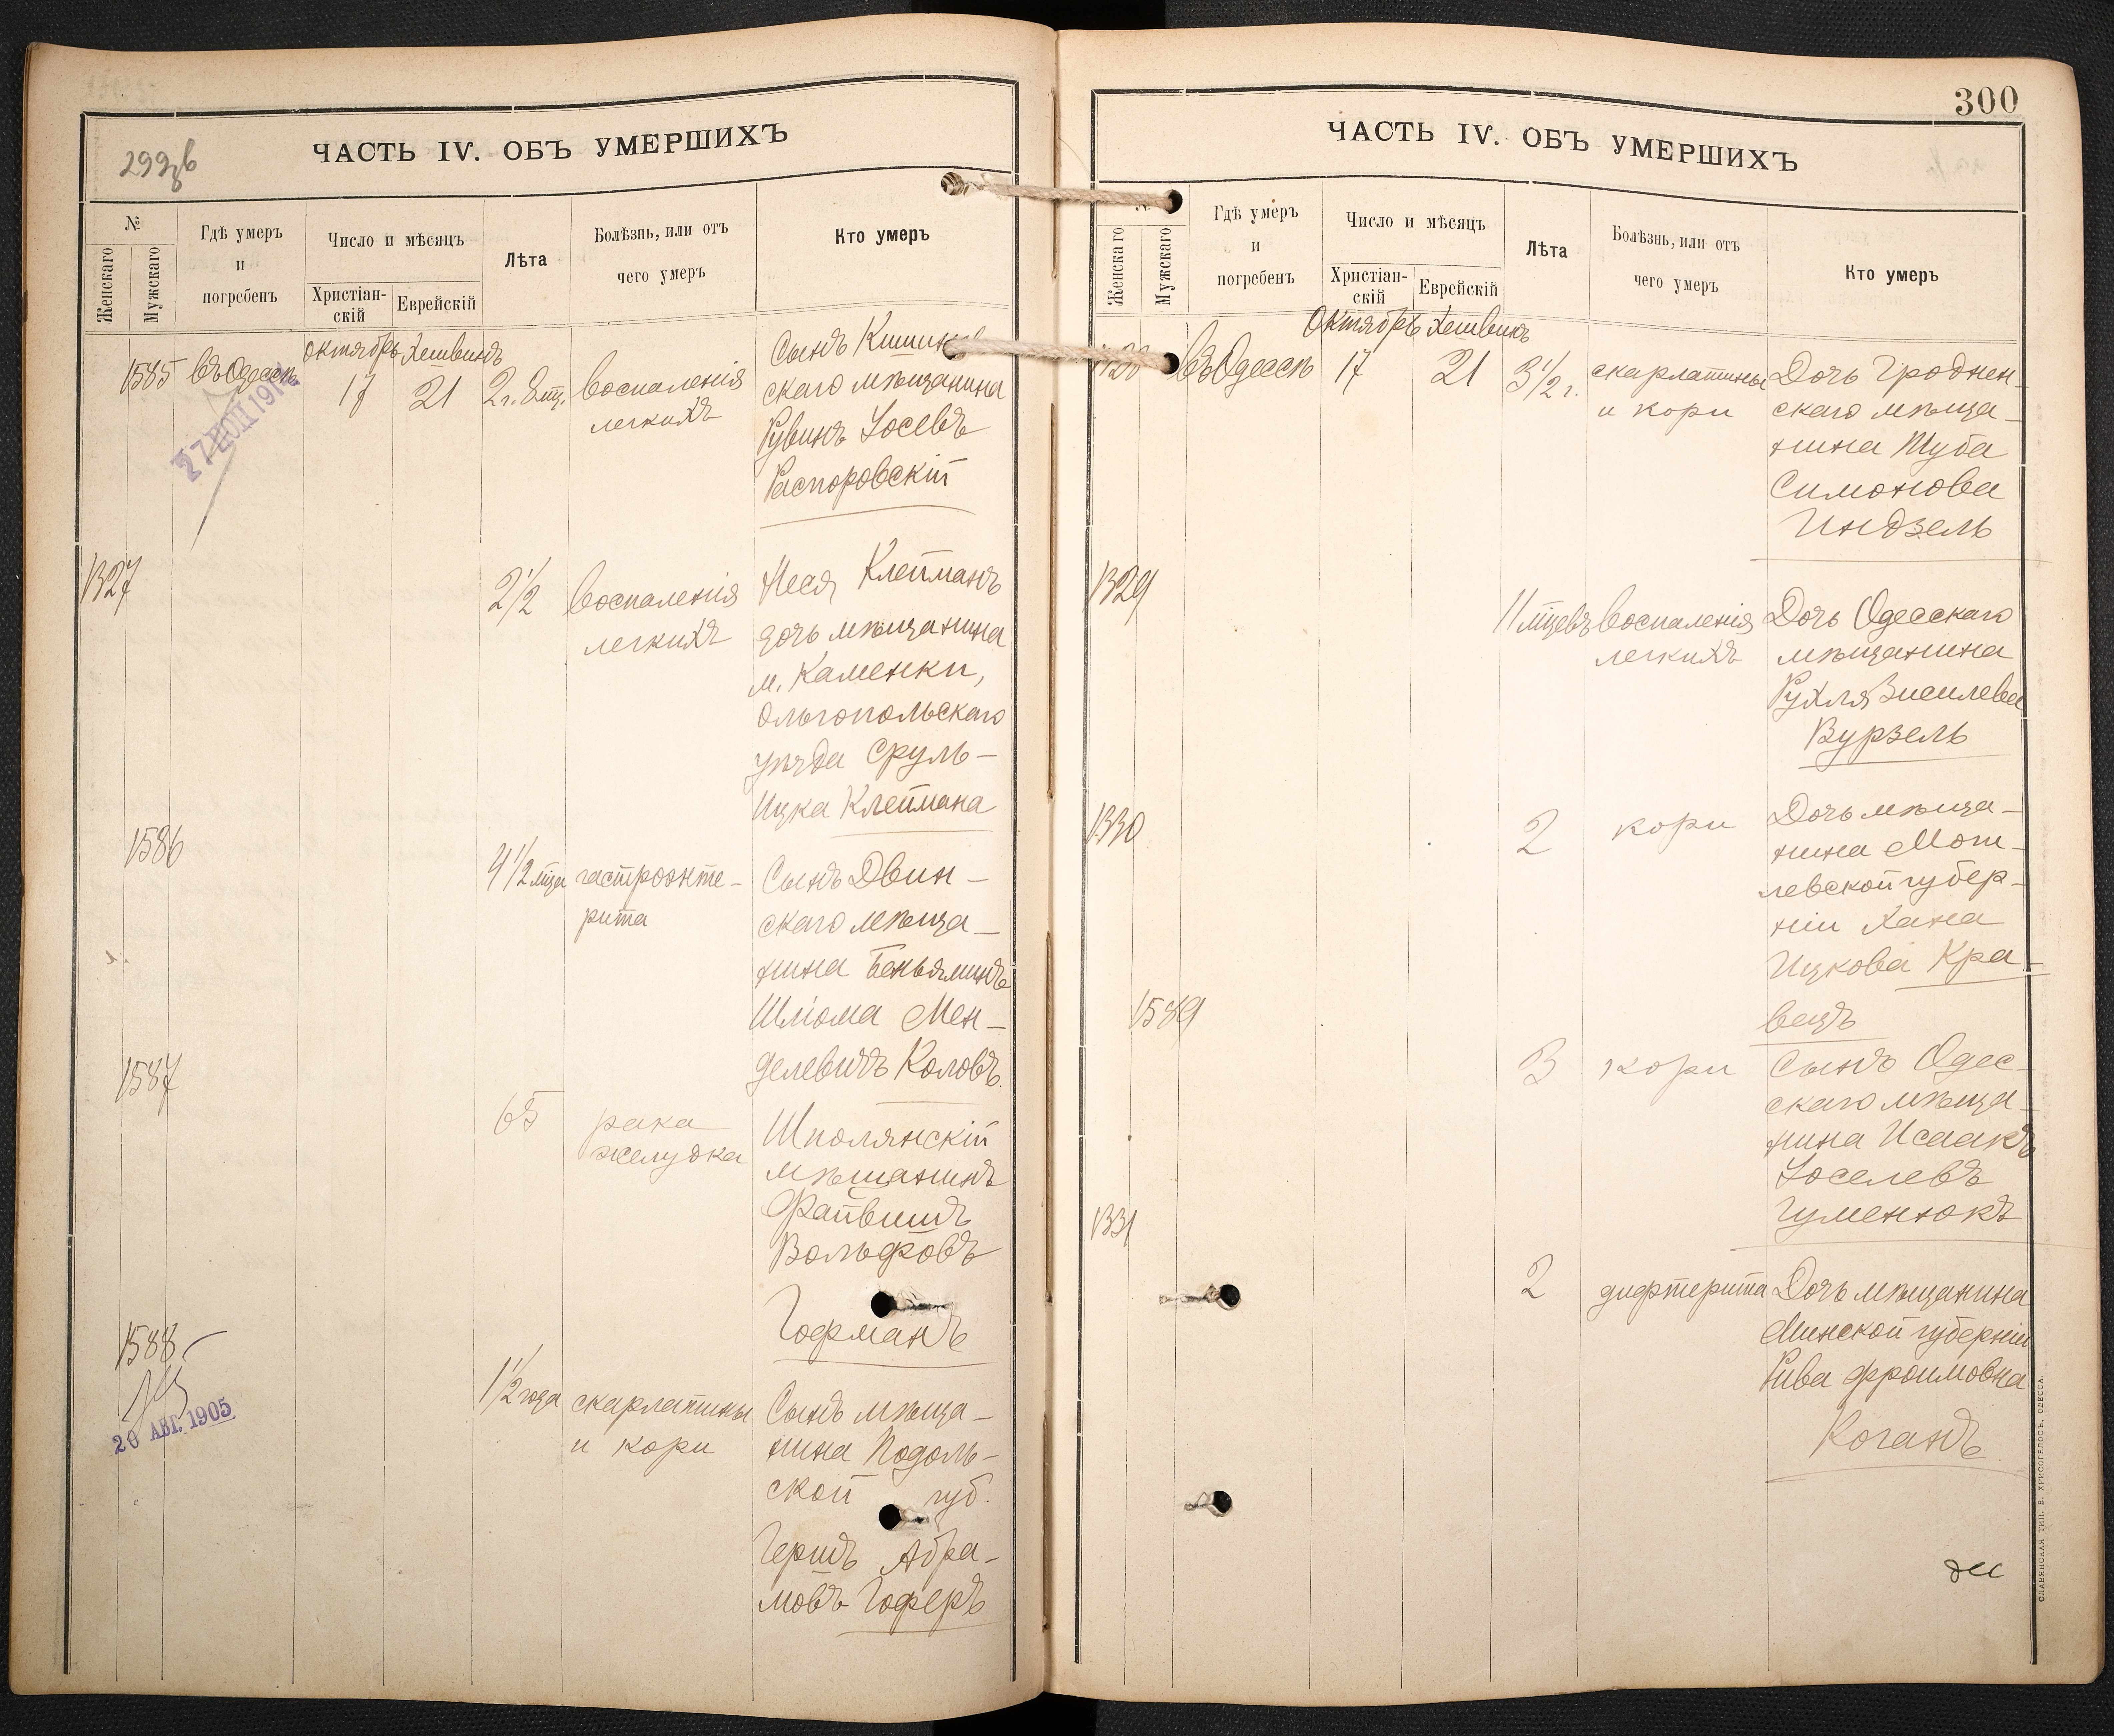 299 об
ЧАСТЬ IV. ОБЪ УМЕРШИХЪ
№
Женскаго
Мужскаго
Гдѣ умеръ
и
погребенъ
Число и мѣсяцъ
Христіан-
скій
Еврейскій
Лѣта
Болѣзнь, или отъ
чего умеръ
Кто умеръ
Октябрь Хешвинъ
1585 Въ Одессѣ 17 21 2 г. 8 мц. воспаленія
легкихъ
Сынъ Кишинев
скаго мѣщанина
Рувинъ Іосевъ
Распоровскій
1327 2 1/2 воспаленія
легкихъ
Неся Клейманъ
дочь мѣщанина
м. Каменки,
Ольгопольскаго
уѣзда Сруль-
Ицка Клеймана
1586 4 1/2 мѣца гастроэнте-
рита
Сынъ Двин-
скаго мѣща-
нина Беньяминъ
Шлома Мен-
делевичъ Коловъ.
1587 65 рака
желудка
Шполянскій
мѣщанинъ
Файвишъ
Вольфовъ
Гофманъ
1588
20 АВГ. 1905
1 1/2 года скарлатины
и кори
Сынъ мѣща-
нина Подоль-
ской губ.
Гершъ Абра-
мовъ Гоферъ
300
ЧАСТЬ IV. ОБЪ УМЕРШИХЪ
№
Женскаго
Мужскаго
Гдѣ умеръ
и
погребенъ
Число и мѣсяцъ
Христіан-
скій
Еврейскій
Лѣта
Болѣзнь, или отъ
чего умеръ
Кто умеръ
Октябрь Хешвинъ
Въ Одессѣ 17 21 3 1/2 г. скарлатины
и кори
Дочь Гроднен-
скаго мѣща-
нина Шуба
Симонова
Индзель
1329 11 мѣцевъ воспаленія
легкихъ
Дочь Одесскаго
мѣщанина
Рухля Зиселева
Вурзель
1330 2 кори
Дочь мѣща-
нина Моги-
левской губер-
ніи Хана
Ицкова Кра-
вецъ
1589 3 кори
Сынъ Одес-
скаго мѣща-
нина Исаакъ
Іоселевъ
Гуменюкъ
1331 2 дифтерита
Дочь мѣщанина
Минской губерніи
Рива Фроимовна
Коганъ
СЛАВЯНСКАЯ ТИП. Е. ХРИСОГЕЛОСЪ, ОДЕССА.